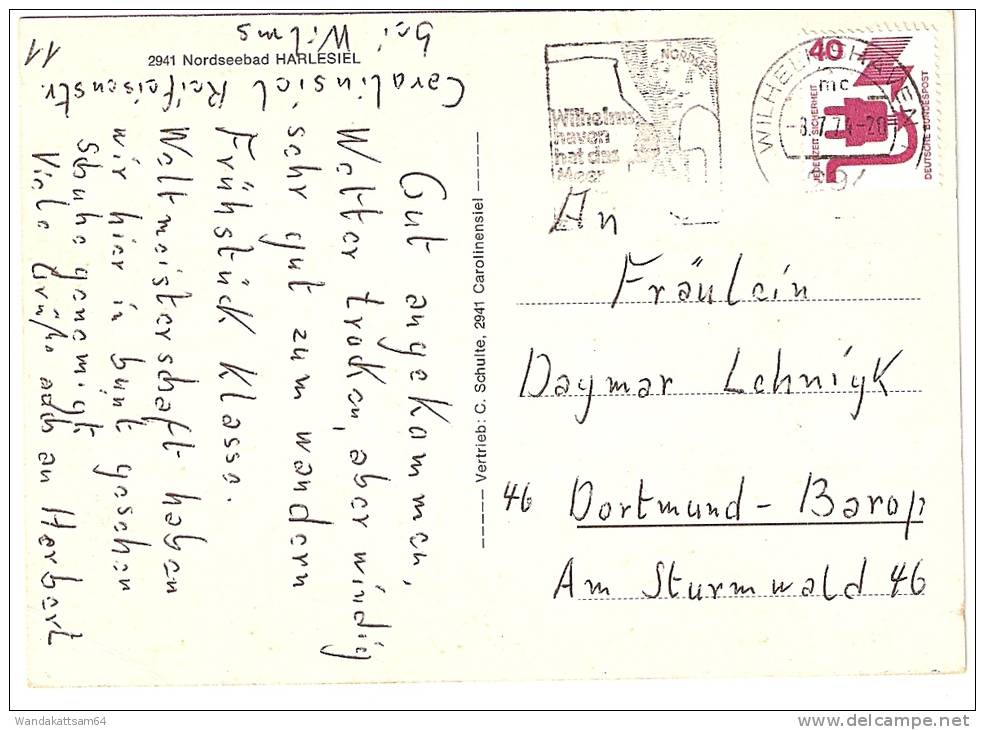 bei Wilms
Carolinsiel Reifeisenstr.
11
2941 Nordseebad HARLESIEL
Gut angekommen,
Wetter trocken, aber windig
sehr gut zum wandern
Frühstück Klasse.
Weltmeisterschaft haben
wir hier in bunt gesehen
Schuhe genemigt
Viele Grüße auch an Herbert
Vertrieb: C. Schulte, 2941 Carolinensiel
NORDSEE
Wilhelms
haven
hat das
Meer
WILHELMSHAVEN
mc
-8.7.74-20
294
40
JEDERZEIT SICHERHEIT
DEUTSCHE BUNDESPOST
An
Fräulein
Dagmar Lehnigk
46 Dortmund - Barop
Am Sturmwald 46
Wandakattsam64
delcampe.net